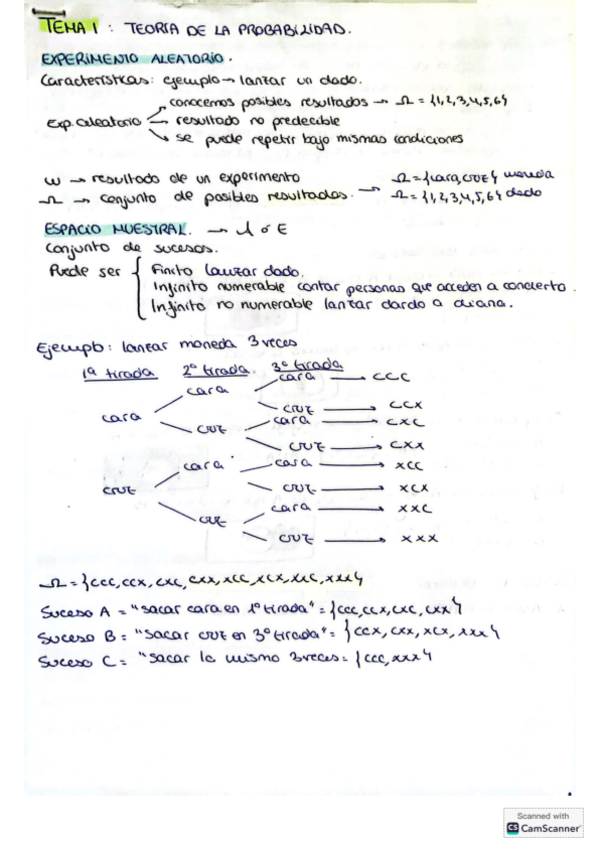 TEMA 1 : TEORÍA DE LA PROBABILIDAD.
EXPERIMENTO ALEATORIO.
Características: ejemplo → lanzar un dado.
Exp. aleatorio
conocemos posibles resultados → Ω = {1,2,3,4,5,6}
resultado no predecible
se puede repetir bajo mismas condiciones
w → resultado de un experimento
Ω → conjunto de posibles resultados. → Ω = {cara, cruz} moneda
Ω = {1,2,3,4,5,6} dado
ESPACIO MUESTRAL. → Ω ó E
Conjunto de sucesos.
Puede ser
Finito lanzar dado.
Infinito numerable contar personas que acceden a concierto.
Infinito no numerable lanzar dardo a diana.
Ejemplo: lanzar moneda 3 veces
1ª tirada 2ª tirada 3ª tirada
cara cara cara → CCC
cruz → CCX
cruz cara → CXC
cruz → CXX
cruz cara cara → XCC
cruz → XCX
cruz cara → XXC
cruz → XXX
Ω = {CCC, CCX, CXC, CXX, XCC, XCX, XXC, XXX}
Suceso A = "sacar cara en 1ª tirada" = {CCC, CCX, CXC, CXX}
Suceso B = "sacar cruz en 3ª tirada" = {CCX, CXX, XCX, XXX}
Suceso C = "sacar lo mismo 3 veces = {CCC, XXX}
Scanned with
CS CamScanner